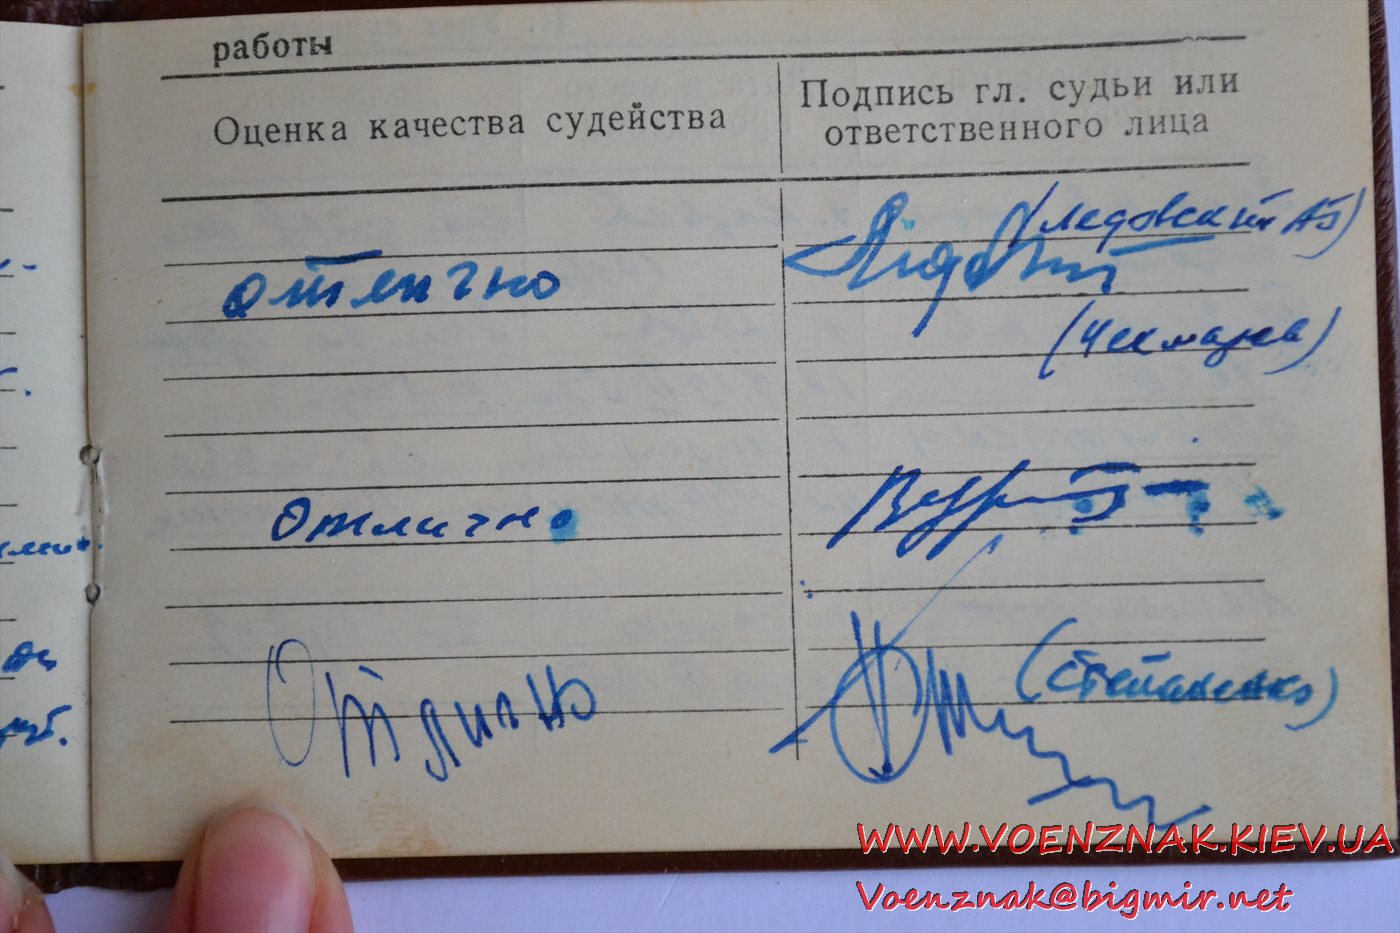 работы
Оценка качества судейства
Подпись гл. судьи или
ответственного лица
(Ледовский АБ)
отлично
(Чекмарева)
Отлично
Отлично
(Степаненко)
WWW.VOENZNAK.KIEV.UA
Voenznak@bigmir.net